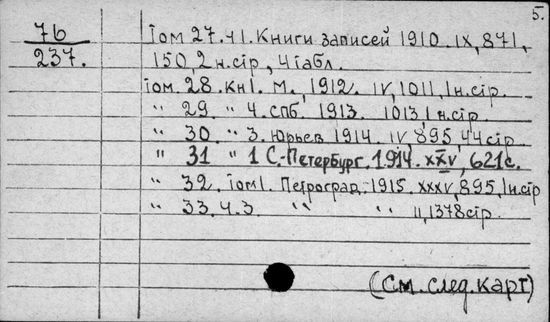 5.
76
237.
Том 27.Ч1. Книги записей 1910. IX, 871,
150, 2 н.стр., 4 табл.
Том. 28. кн1. М., 1912. IV, 1011, 1 н.стр.
" 29. " 4. СПб. 1913. 1013, 1 н.стр.
" 30. " 3. Юрьев 1914. IV, 895, 44 стр.
" 31 " 1 С.-Петербург. 1914. XXV, 621 с.
" 32. Том1. Петроград. 1915. XXXV, 895, 1 н.стр
" 33. Ч.3. " " II, 1378 стр.
(См. след. карт)